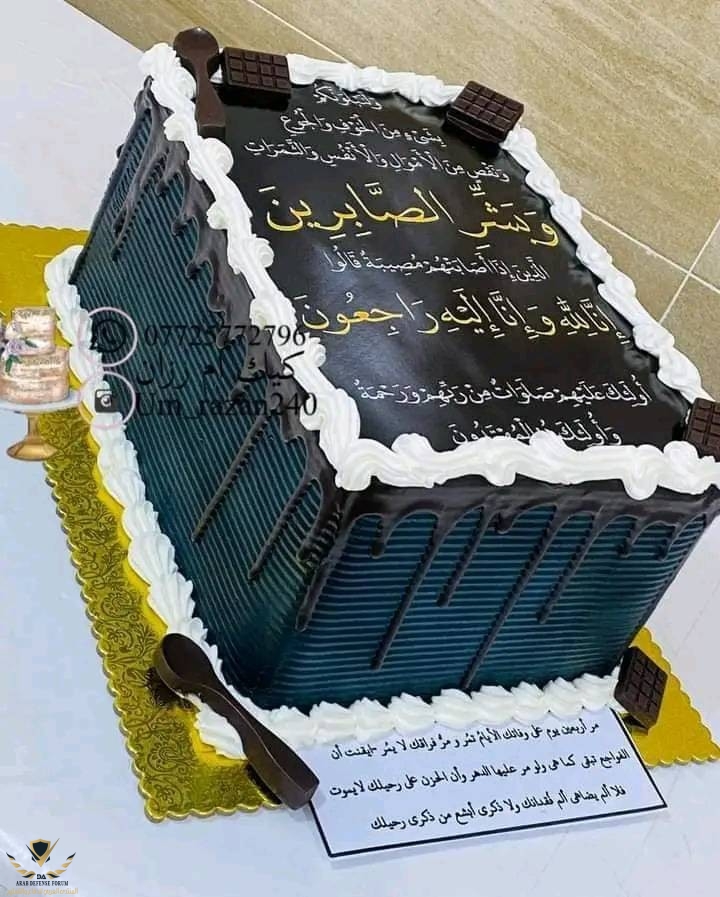 وَلَنَبْلُوَنَّكُمْ
بِشَيْءٍ مِنَ الْخَوْفِ وَالْجُوعِ
وَنَقْصٍ مِنَ الْأَمْوَالِ وَالْأَنْفُسِ وَالثَّمَرَاتِ
وَبَشِّرِ الصَّابِرِينَ
الَّذِينَ إِذَا أَصَابَتْهُمْ مُصِيبَةٌ قَالُوا
إِنَّا لِلَّهِ وَإِنَّا إِلَيْهِ رَاجِعُونَ
أُولَٰئِكَ عَلَيْهِمْ صَلَوَاتٌ مِنْ رَبِّهِمْ وَرَحْمَةٌ
وَأُولَٰئِكَ هُمُ الْمُهْتَدُونَ
07725772796
كيك ام رزان
Um_razan240
مر أربعين يوم على وفاتك الأيام تمر و مر فراقك لا يمر -ايقنت أن
الفواجع تبقى كما هي ولو مر عليها الدهر وأن الحزن على رحيلك لايموت
فلا ألم يضاهي ألم فقدانك ولا ذكرى أبشع من ذكرى رحيلك
DA
ARAB DEFENSE FORUM